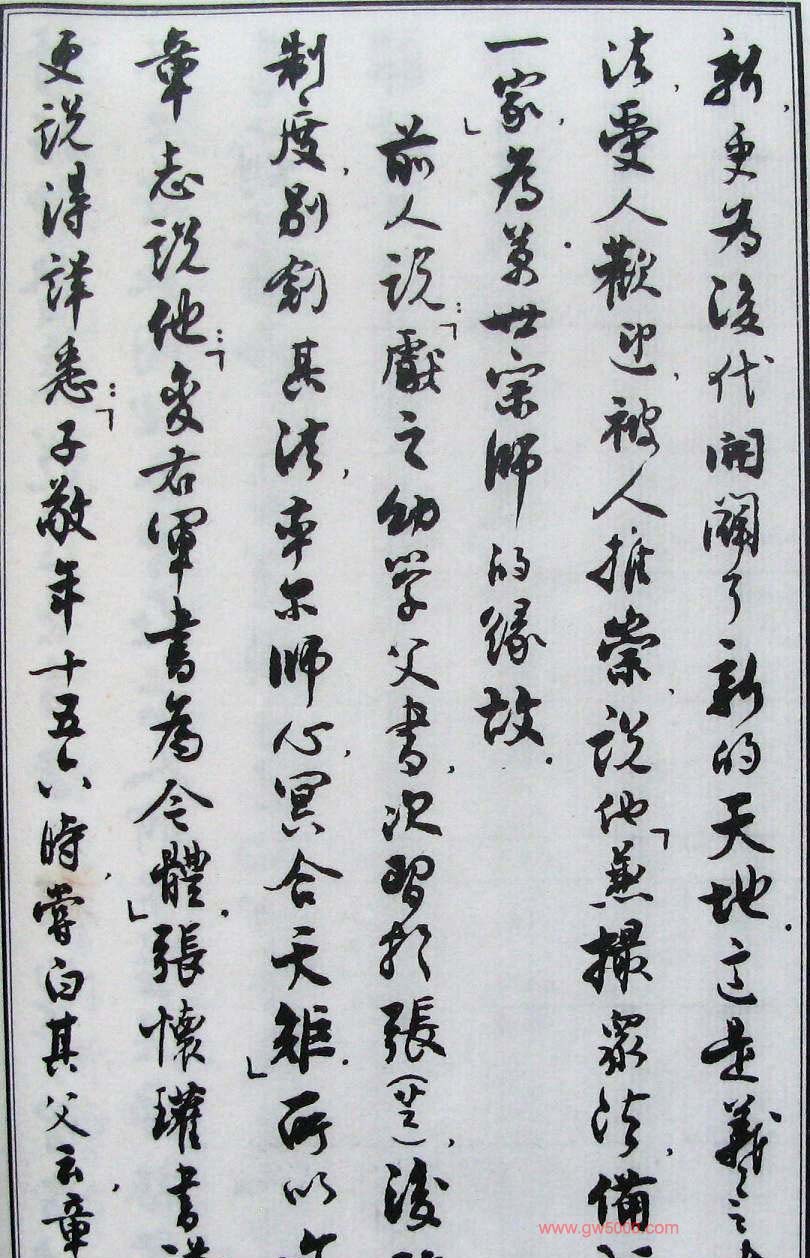 新，更為後代開闢了新的天地。這是羲之
法，受人歡迎，被人推崇，說他「兼撮眾法，備
一家」，為萬世宗師的緣故。
前人說：「獻之幼學父書，次習於張（芝），後
制度，別創其法，率尔師心，冥合天矩。」所以
章志說他：「變右軍書為今體。」張懷瓘書
更說得詳悉：「子敬年十五六時，嘗白其父云，章
www.gw500d.com